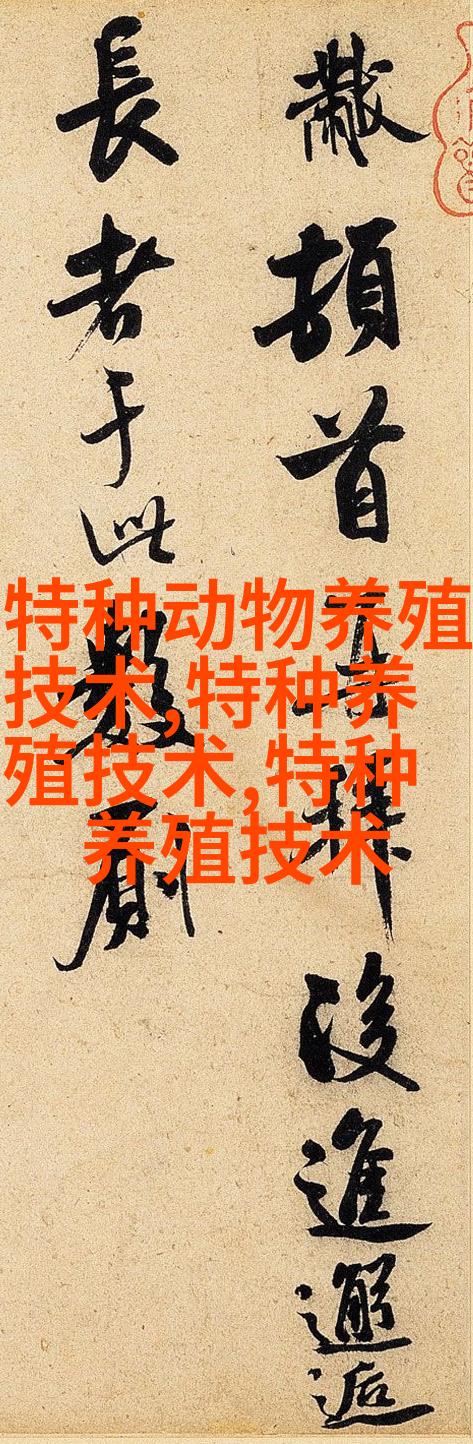 黻頓首再拜後進邂逅
長者于此數厠
特种动物养殖
技术,特种养
殖技术,特种
养殖技术